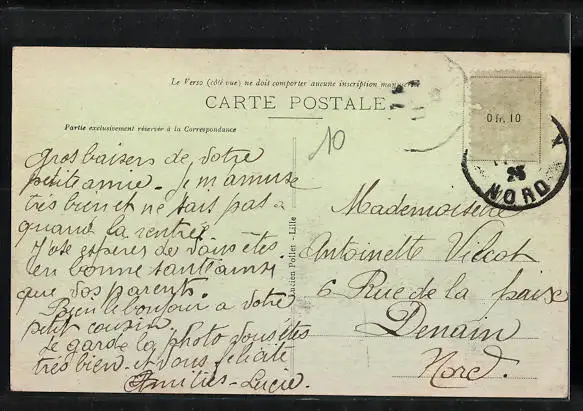 Le Verso (côté vue) ne doit comporter aucune inscription manuscrite
CARTE POSTALE
Partie exclusivement réservée à la Correspondance
10
0 fr. 10
25
NORD
Gros baisers de votre
petite amie. Je m'amuse
très bien et ne sais pas
quand la rentrée.
J'ose espérer de vous êtes
en bonne santé ainsi
que vos parents.
Bien le bonjour a votre
petit cousin.
Je garde la photo vous êtes
très bien et vous félicite
Amitiés - Lucie.
Lucien Pollet - Lille
Mademoiselle
Antoinette Vilcot
6 Rue de la paix
Denain
Nord.